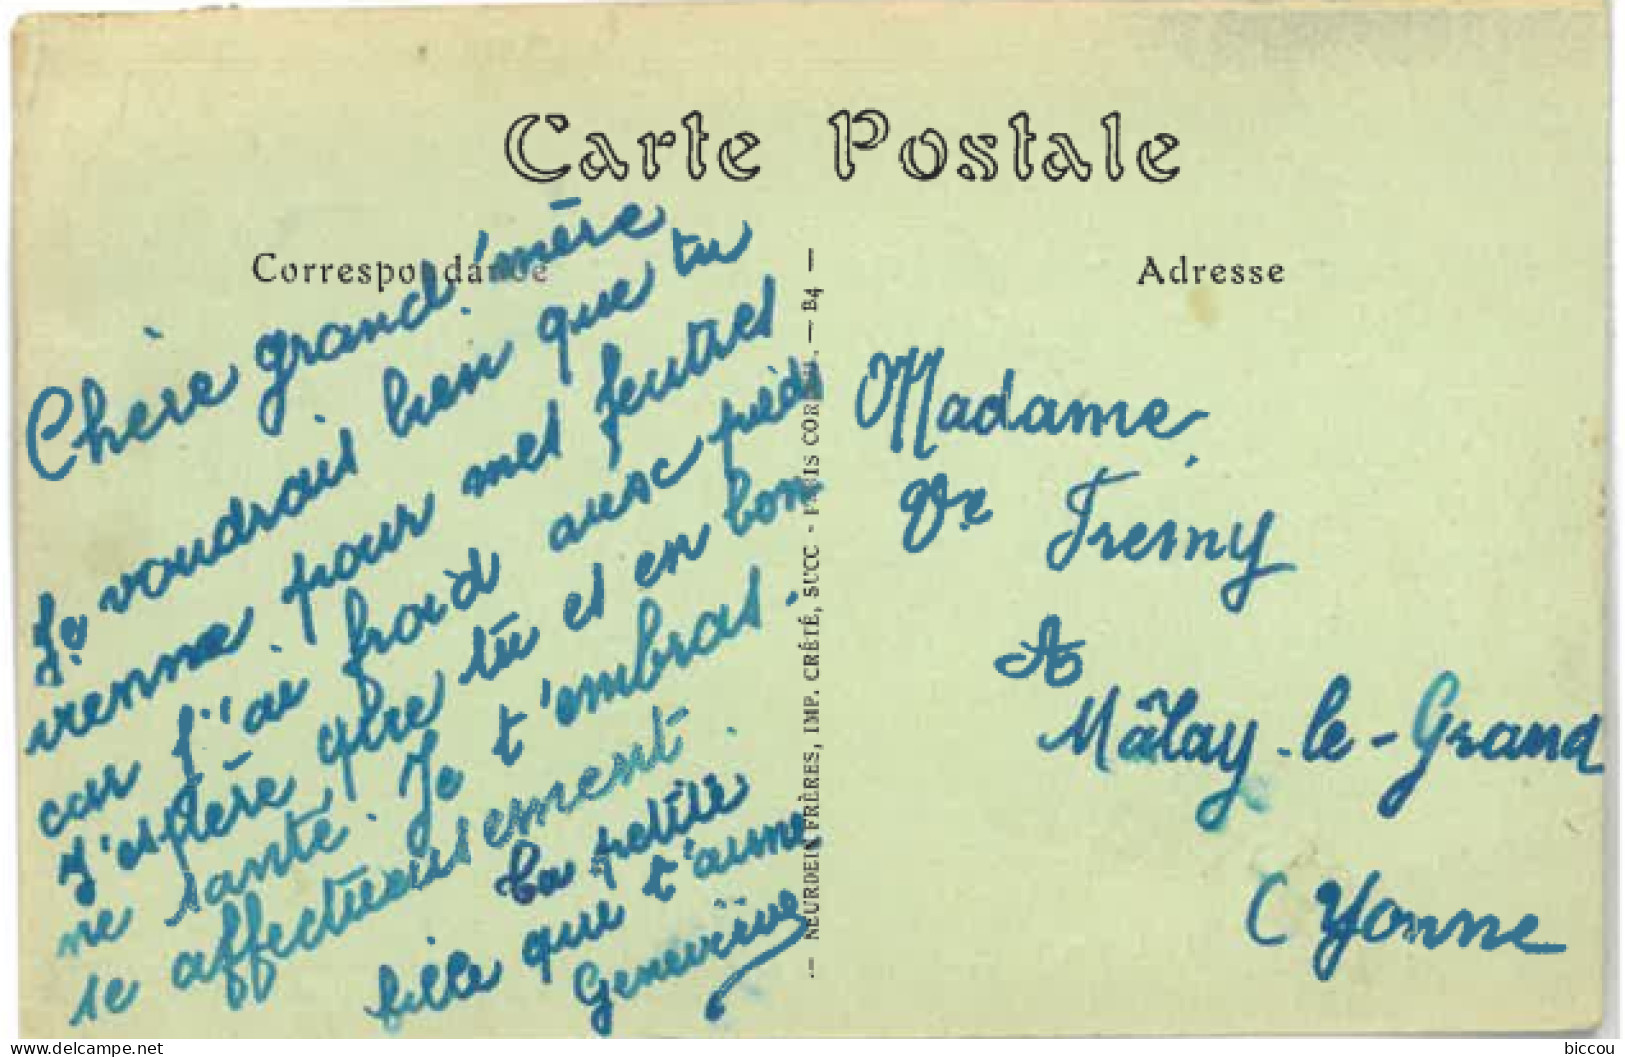 Carte Postale
Correspondance
Adresse
Chère grand'mère
Je voudrais bien que tu
vienne pour mes feutres
car j'ai froid ausc pieds
J'espère que tu es en bon
ne santé. Je t'embras.
se affectueusement.
ta petite
fille que t'aime
Geneviève
NEURDEIN FRÈRES, IMP. CRÉTÉ, SUCC - PARIS CORBEIL. — B4 —
Madame
Vve Fresny
A
Mâlay-le-Grand
Yonne
delcampe.net
biccou